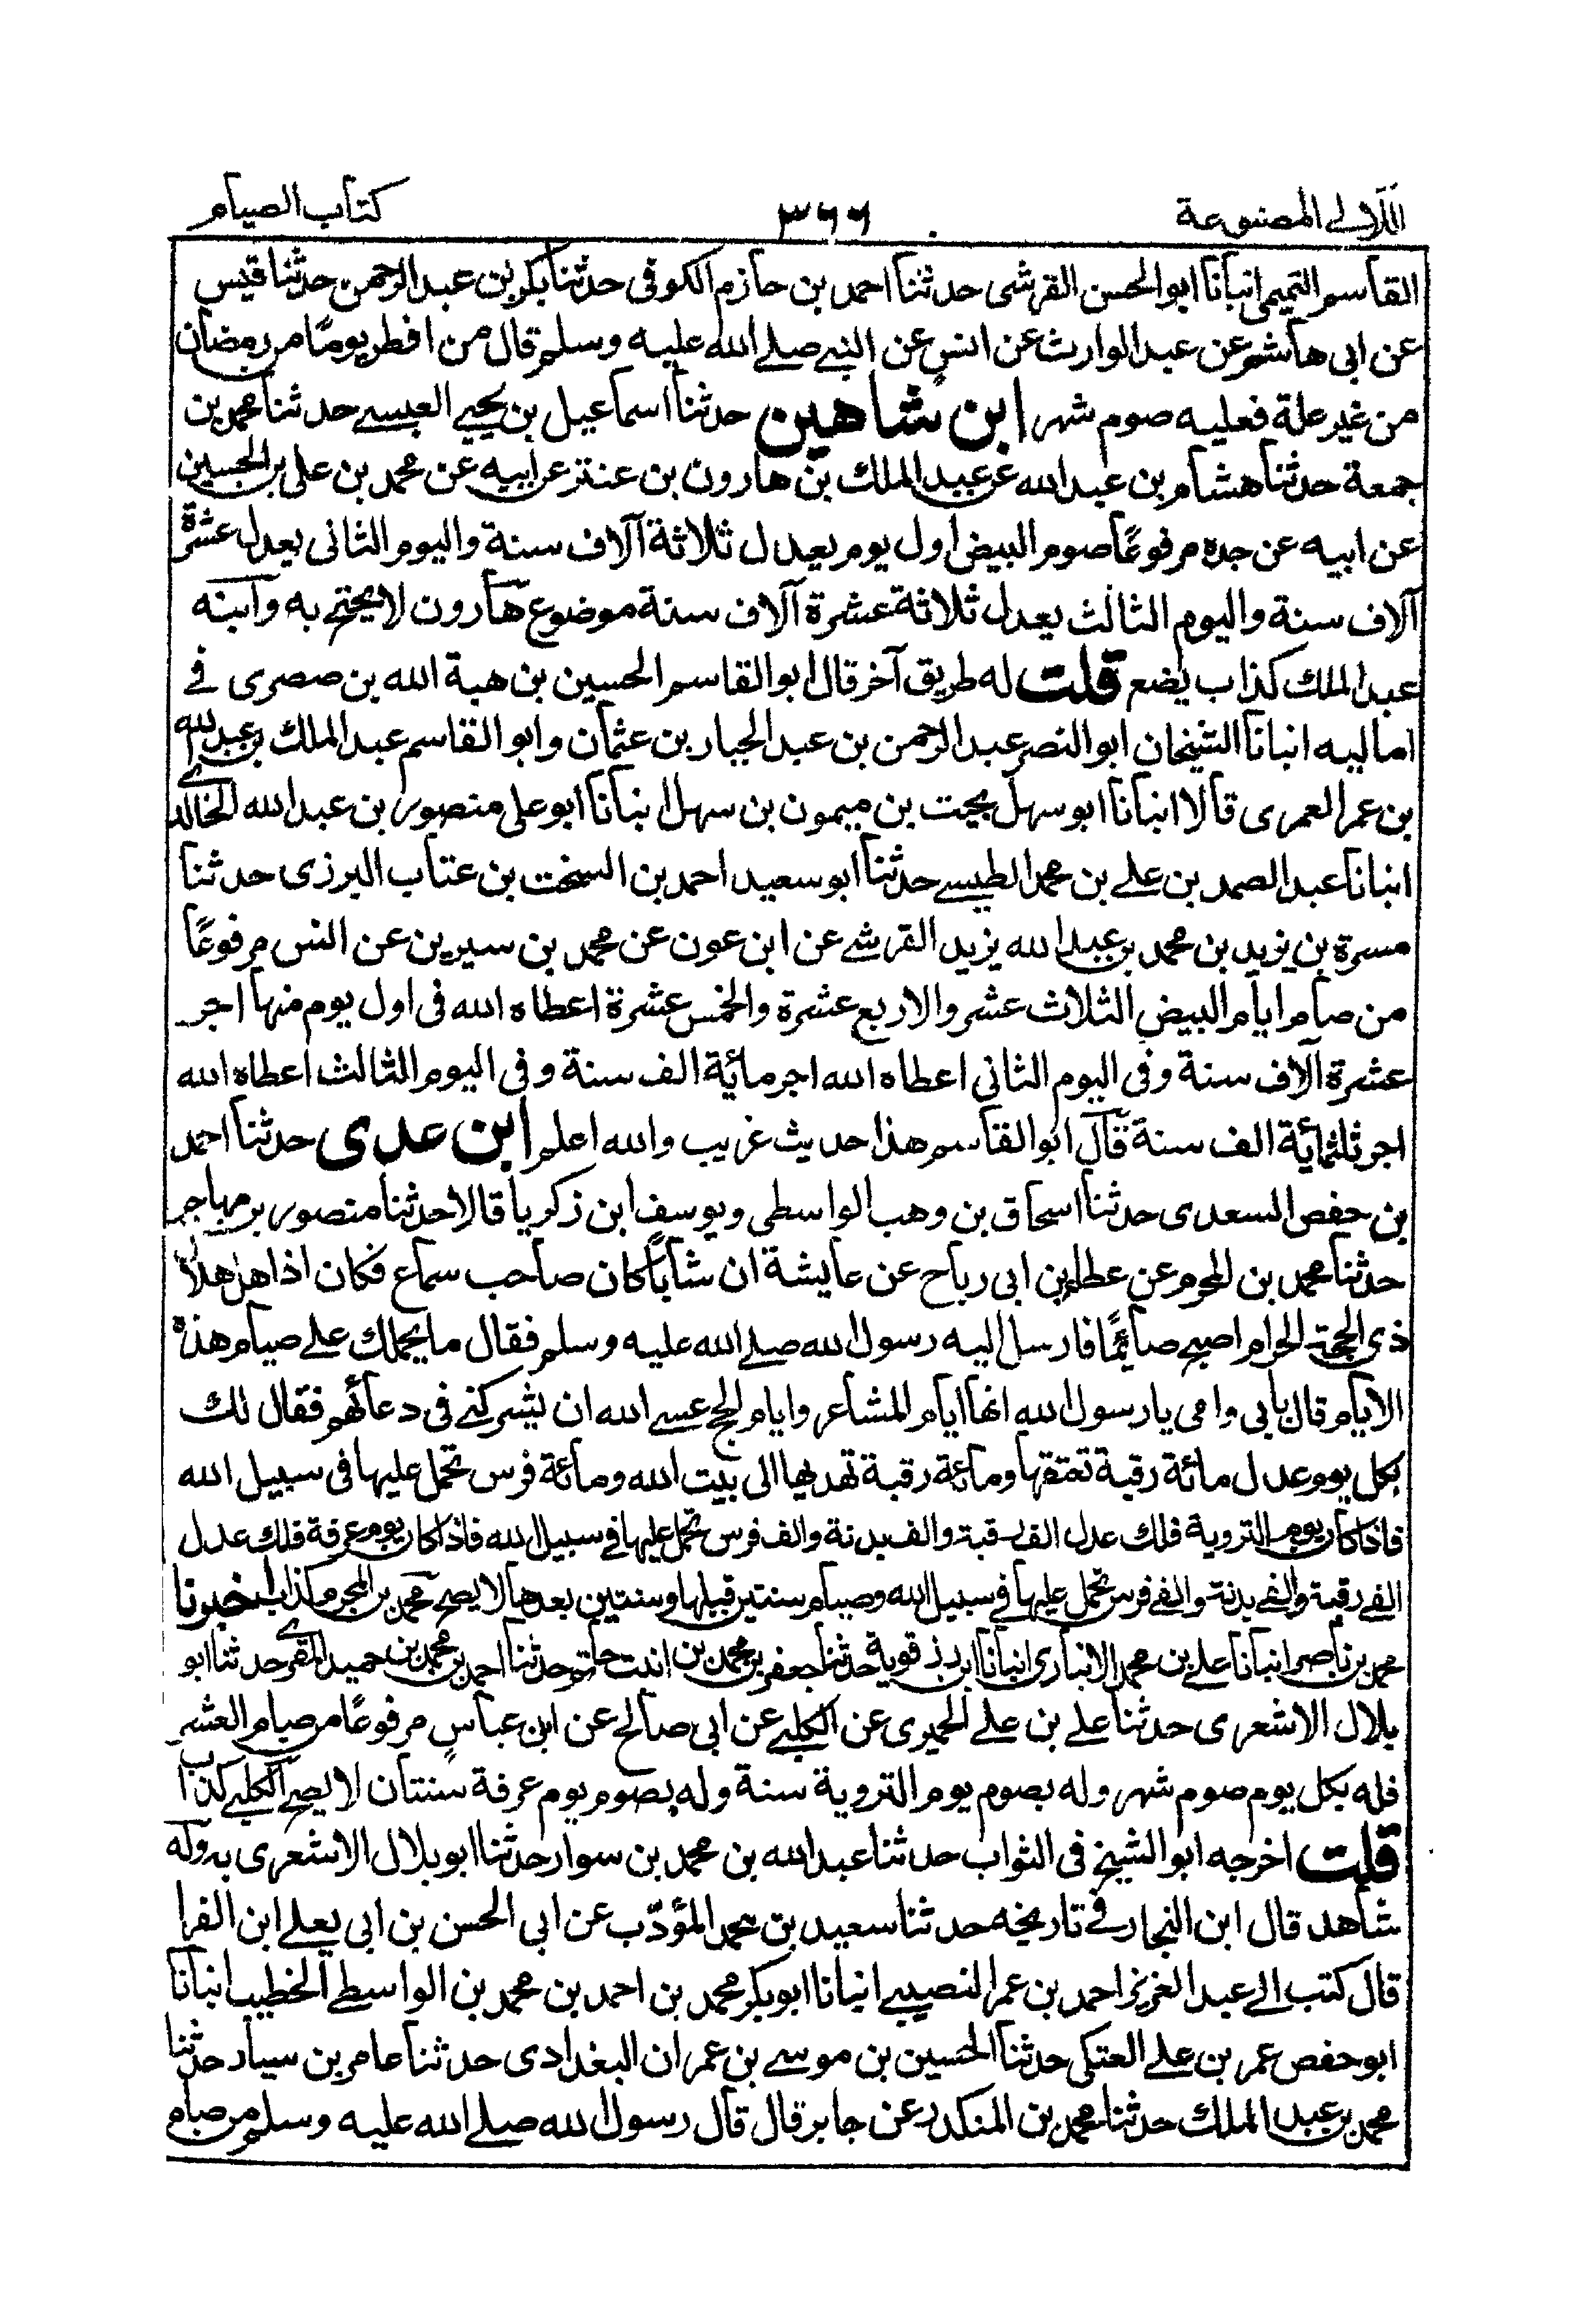 اللآلي المصنوعة
٣٦٦
كتاب الصيام
القاسم التميمي انبأنا ابو الحسن القرشي حدثنا احمد بن حازم الكوفى حدثنا بكر بن عبد الرحمن حدثنا قيس
عن ابى هاشم عن عبد الوارث عن انس عن النبى صلى الله عليه وسلم قال من افطر يومًا من رمضان
من غير علة فعليه صوم شهر ابن شاهين حدثنا اسماعيل بن يحيى العبسى حدثنا محمد بن
جمعة حدثنا هشام بن عبد الله عن عبد الملك بن هارون بن عنتر عن ابيه عن محمد بن على بن الحسين
عن ابيه عن جده مرفوعًا صوم البيض اول يوم يعدل ثلاثة آلاف سنة واليوم الثانى يعدل عشرة
آلاف سنة واليوم الثالث يعدل ثلاثة عشرة آلاف سنة موضوع هارون لا يحتج به وابنه
عبد الملك كذاب يضع قلت له طريق آخر قال ابو القاسم الحسين بن هبة الله بن صصرى فى
اماليه انبانا الشيخان ابو النصر عبد الرحمن بن عبد الجبار بن عثمان وابو القاسم عبد الملك بن عبد الله
بن عمر العمرى قالا انبانا ابو سهل بجيت بن ميمون بن سهل انبانا ابو على منصور بن عبد الله الخالدى
انبانا عبد الصمد بن على بن محمد الطبسى حدثنا ابو سعيد احمد بن السخت بن عتاب البرزى حدثنا
مسرة بن يزيد بن محمد بن عبد الله يزيد القرشى عن ابن عون عن محمد بن سيرين عن انس مرفوعًا
من صام ايام البيض الثلاث عشر والاربع عشرة والخمس عشرة اعطاه الله فى اول يوم منها اجر
عشرة آلاف سنة وفى اليوم الثانى اعطاه الله اجر مائة الف سنة وفى اليوم الثالث اعطاه الله
اجر ثلثمائة الف سنة قال ابو القاسم هذا حديث غريب والله اعلم ابن عدى حدثنا احمد
بن حفص السعدى حدثنا اسحاق بن وهب الواسطى ويوسف ابن زكريا قالا حدثنا منصور بن مهاجر
حدثنا محمد بن المحرم عن عطاء بن ابى رباح عن عايشة ان شابًا كان صاحب سماع فكان اذا هل هلال
ذى الحجة الحرام اصبح صائمًا فارسل اليه رسول الله صلى الله عليه وسلم فقال ما يحملك على صيام هذه
الايام قال بابى وامى يا رسول الله انها ايام المشاعر وايام الحج عسى الله ان يشركنى فى دعائهم فقال لك
بكل يوم عدل مائة رقبة تعتقها ومائة رقبة تهديها الى بيت الله ومائة فرس تحمل عليها فى سبيل الله
فاذا كان يوم التروية فلك عدل الف رقبة والف بدنة والف فرس تحمل عليها فى سبيل الله فاذا كان يوم عرفة فلك عدل
الفى رقبة والفى بدنة والفى فرس تحمل عليها فى سبيل الله وصيام سنتين قبلها وسنتين بعدها لا يصح محمد بن المحرم كذاب اخبرنا
محمد بن ناصر انبانا على بن محمد الانبارى انبانا ابن رزقوية حدثنا جعفر بن محمد بن حدثنا احمد بن محمد بن حميد المقرى حدثنا ابو
بلال الاشعرى حدثنا على بن على الحميرى عن الكلبى عن ابى صالح عن ابن عباس مرفوعًا من صيام العشر
فله بكل يوم صوم شهر وله بصوم يوم التروية سنة وله بصوم يوم عرفة سنتان لا يصح الكلبى كذاب
قلت اخرجه ابو الشيخ فى الثواب حدثنا عبد الله بن محمد بن سوار حدثنا ابو بلال الاشعرى به وله
شاهد قال ابن النجار فى تاريخه حدثنا سعيد بن محمد المؤدّب عن ابى الحسن بن ابى يعلى ابن الفرا
قال كتب الى عبد العزيز احمد بن عمر النصيبى انبانا ابو بكر محمد بن احمد بن محمد بن الواسطى الخطيب انبانا
ابو حفص عمر بن على العتكى حدثنا الحسين بن موسى بن عمران البغدادى حدثنا عامر بن سيار حدثنا
محمد بن عبد الملك حدثنا محمد بن المنكدر عن جابر قال قال رسول الله صلى الله عليه وسلم من صام